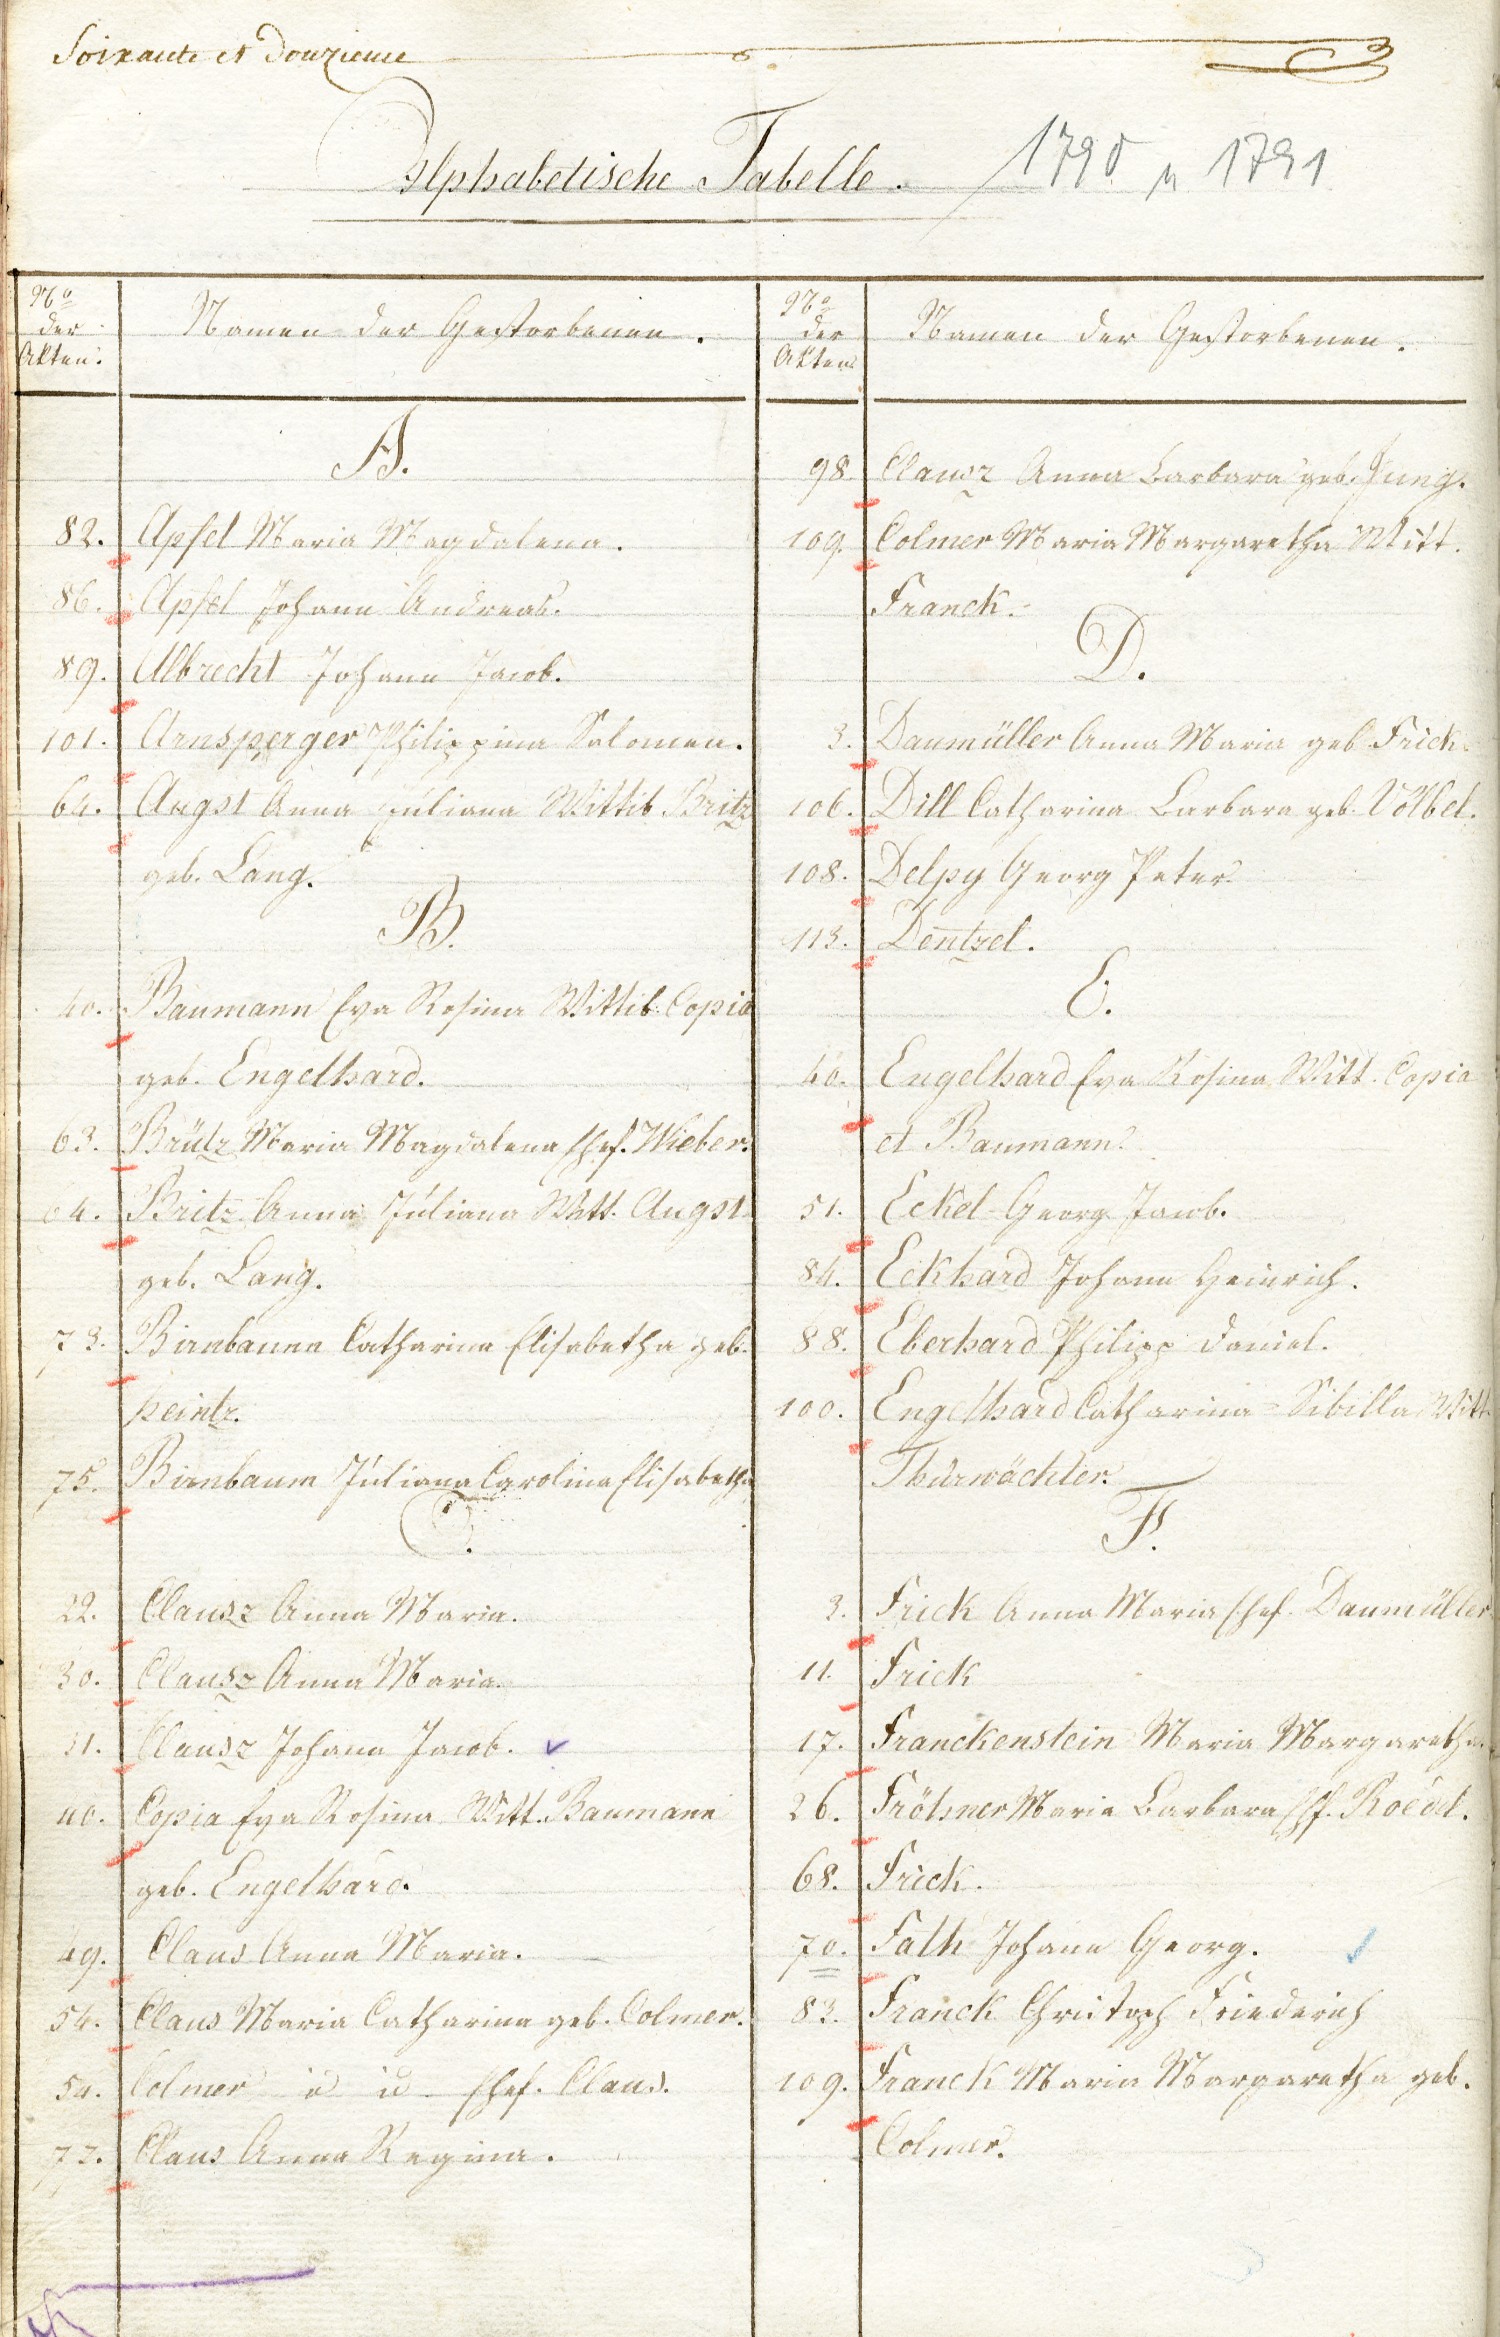 Soixante et Douzieme
Alphabetische Tabelle. 1790 u 1791
No der Akten.
Namen der Gestorbenen.
A.
82. Apfel Maria Magdalena.
86. Apfel Johann Andreas.
89. Albrecht Johann Jacob.
101. Arnsperger Philippina Salomea.
64. Augst Anna Juliana Wittib Britz
geb. Lang.
B.
40. Baumann Eva Rosina Wittib Copia
geb. Engelhard.
63. Brütz Maria Magdalena Ehef. Wieber.
64. Britz Anna Juliana Witt. Augst
geb. Lang.
73. Birnbaum Catharina Elisabetha geb.
Heintz.
75. Birnbaum Juliana Carolina Elisabetha
C.
22. Clausz Anna Maria.
30. Clausz Anna Maria.
31. Clausz Johann Jacob.
40. Copia Eva Rosina Witt. Baumann
geb. Engelhard.
49. Claus Anna Maria.
54. Claus Maria Catharina geb. Colmer.
54. Colmer " " Ehef. Claus.
73. Claus Anna Regina.
No der Akten
Namen der Gestorbenen.
98. Clausz Anna Barbara geb. Jung.
109. Colmer Maria Margaretha Witt.
Franck.
D.
3. Daumüller Anna Maria geb. Frick.
106. Dill Catharina Barbara geb. Völbel.
108. Delpy Georg Peter
113. Dentzel.
E.
40. Engelhard Eva Rosina Witt. Copia
et Baumann.
51. Eckel Georg Jacob.
84. Eckhard Johann Heinrich.
88. Eberhard Philipp Daniel.
100. Engelhard Catharina Sibilla Witt.
Thürwächter.
F.
3. Frick Anna Maria Ehef. Daumüller
11. Frick
17. Franckenstein Maria Margaretha.
26. Fröhner Maria Barbara Ehf. Roedel.
68. Frick.
70. Fath Johann Georg.
83. Franck Christoph Friederich
109. Franck Maria Margaretha geb.
Colmer.